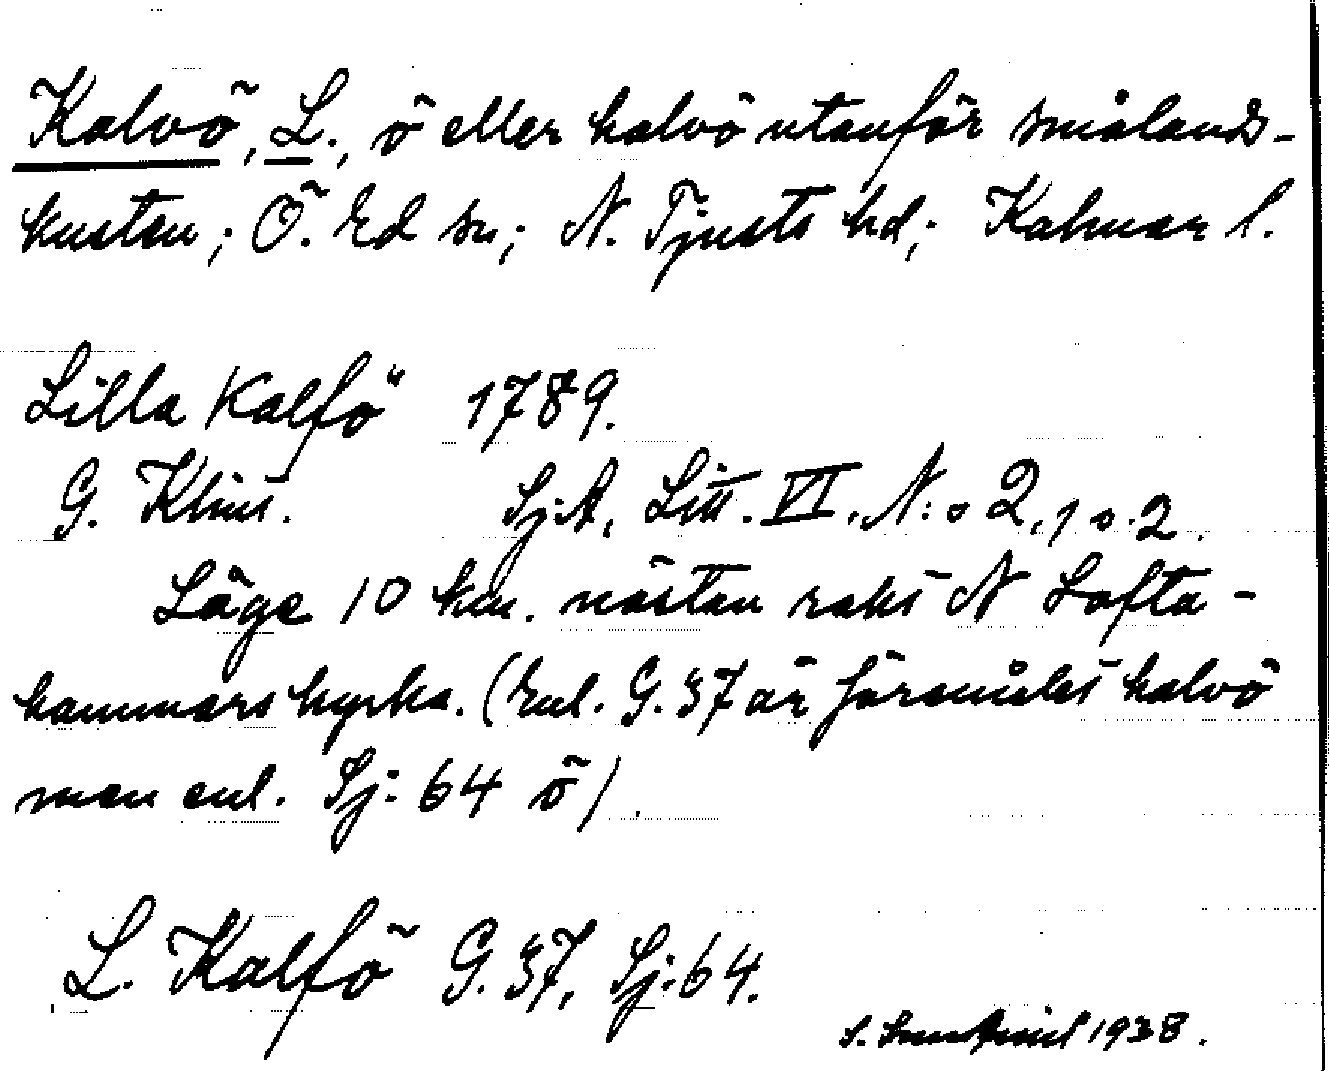 Kalvö, L., ö eller halvö utanför smålands-
kusten; Ö. Ed sn; N. Tjusts hd; Kalmar l.
Lilla Kalfö 1789.
G. Klint. Sj.A, Litt. VI. N:o 2, 1 o. 2.
Läge 10 km. nästan rakt N Lofta-
hammars kyrka. (Enl. G. 37 är föremålet halvö
men enl. Sj: 64 ö).
L. Kalfö G. 37, Sj: 64.
S. 1938.